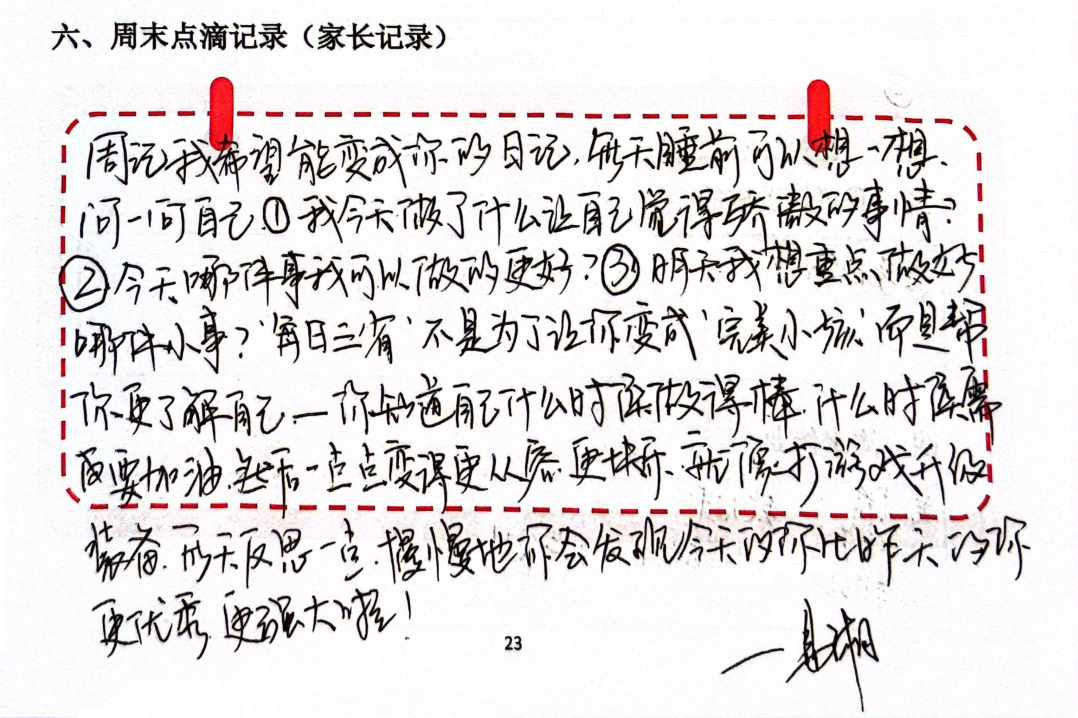 六、周末点滴记录（家长记录）
周记我希望能变成你的日记，每天睡前可以想一想，
问一问自己①我今天做了什么让自己觉得骄傲的事情？
②今天哪件事我可以做的更好？③明天我想重点做好
哪件小事？“每日三省”不是为了让你变成“完美小孩”而是帮
你更了解自己——你知道自己什么时候做得棒，什么时候需
要加油，然后一点点变得更从容更棒，就像打游戏升级
装备，每天反思一点，慢慢地你会发现今天的你比昨天的你
更优秀，更强大啦！
23